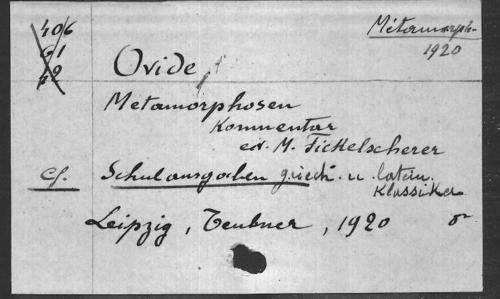 Métamorph.
1920
40/6
Ovide
Metamorphosen
Kommentar
ed. M. Fickelscherer
Cf. Schulausgaben griech. u. latein.
Klassiker
Leipzig, Teubner, 1920 8°